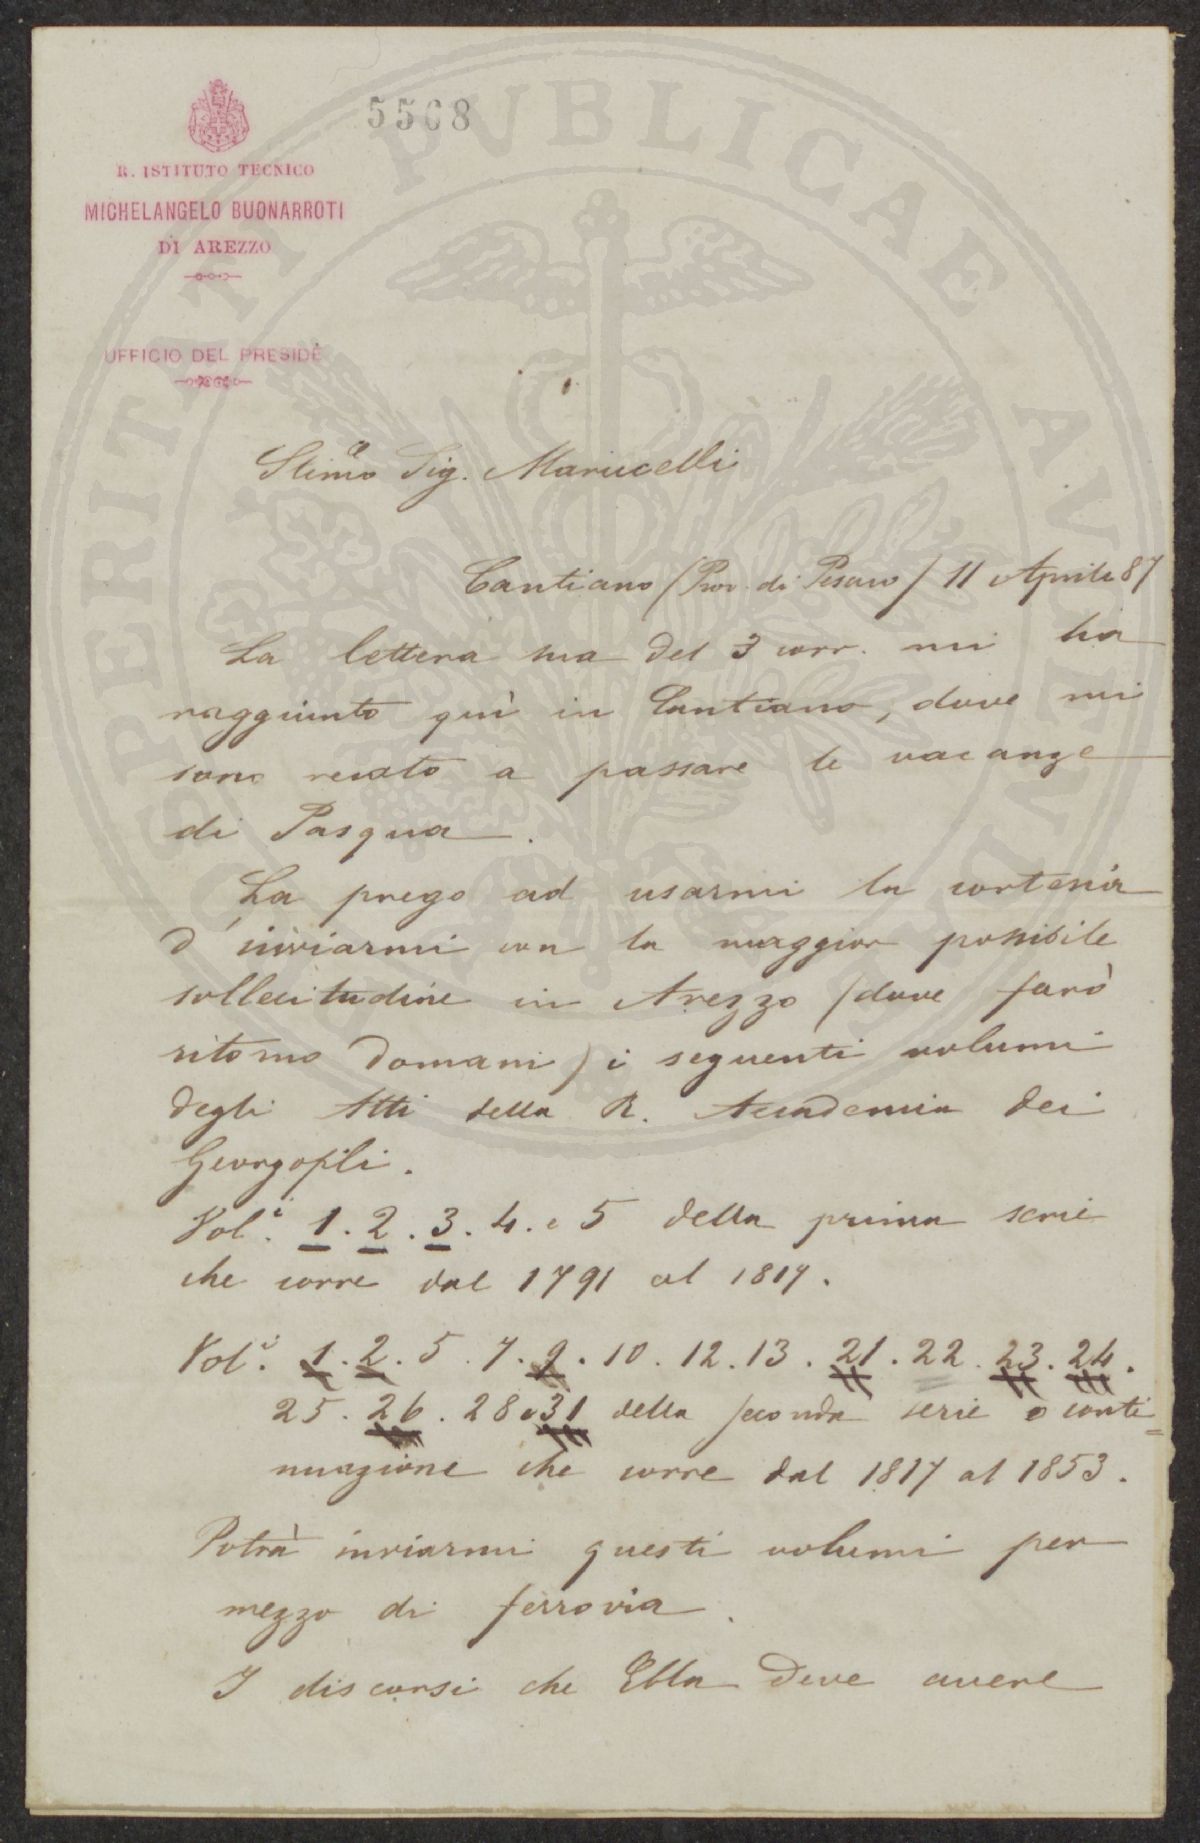 5508
R. ISTITUTO TECNICO
MICHELANGELO BUONARROTI
DI AREZZO
UFFICIO DEL PRESIDE
PROSPERITATI PVBLICAE AVGENDAE
Stimo Sig. Marucelli
Cantiano (Prov. di Pesaro) 11 Aprile 87
La lettera sua del 3 corr. mi ha
raggiunto quì in Cantiano, dove mi
sono recato a passare le vacanze
di Pasqua.
La prego ad usarmi la cortesia
d'inviarmi con la maggior possibile
sollecitudine in Arezzo (dove farò
ritorno domani) i seguenti volumi
degli Atti della R. Accademia dei
Georgofili.
Vol.i 1. 2. 3. 4. e 5 della prima serie
che corre dal 1791 al 1817.
Vol.i 1. 2. 5. 7. 9. 10. 12. 13. 21. 22. 23. 24.
25. 26. 28 e 31 della seconda serie o conti=
nuazione che corre dal 1817 al 1853.
Potrà inviarmi questi volumi per
mezzo di ferrovia.
I discorsi che Ella deve avere